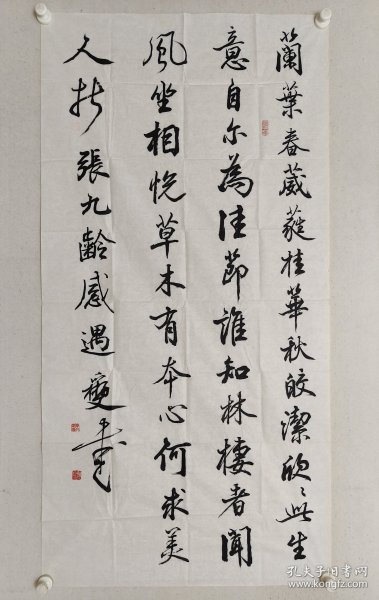 蘭葉春葳蕤桂華秋皎潔欣〻此生
意自尔為佳節誰知林棲者聞
風坐相悦草木有本心何求美
人折張九齡感遇
孔夫子旧书网